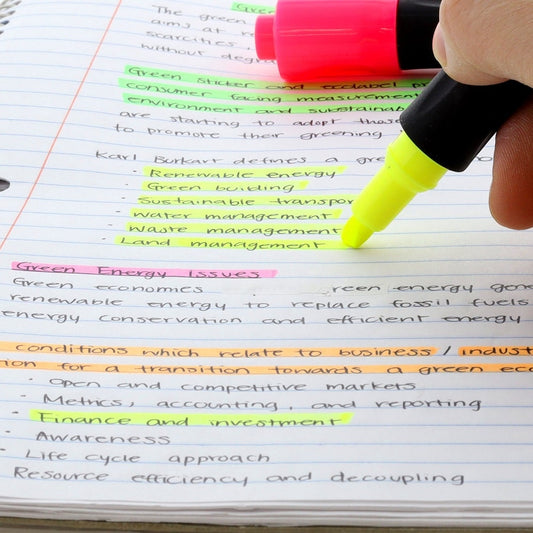 Gree
The green
aims at re
scarcities
without degra
Green sticker and ecolabel pr
consumer facing measurement
environment and sustainab
are starting to adopt these
to promote their greening
Karl Burkart defines a gre
· Renewable energy
· Green building
· Sustainable transpor
· Water management
· Waste management
· Land management
Green Energy Issues
Green economies reen energy gene
renewable energy to replace fossil fuels
energy conservation and efficient energy
conditions which relate to business / indust
ion for a transition towards a green eco
· Open and competitive markets
· Metrics, accounting, and reporting
· Finance and investment
· Awareness
· Life cycle approach
Resource efficiency and decoupling